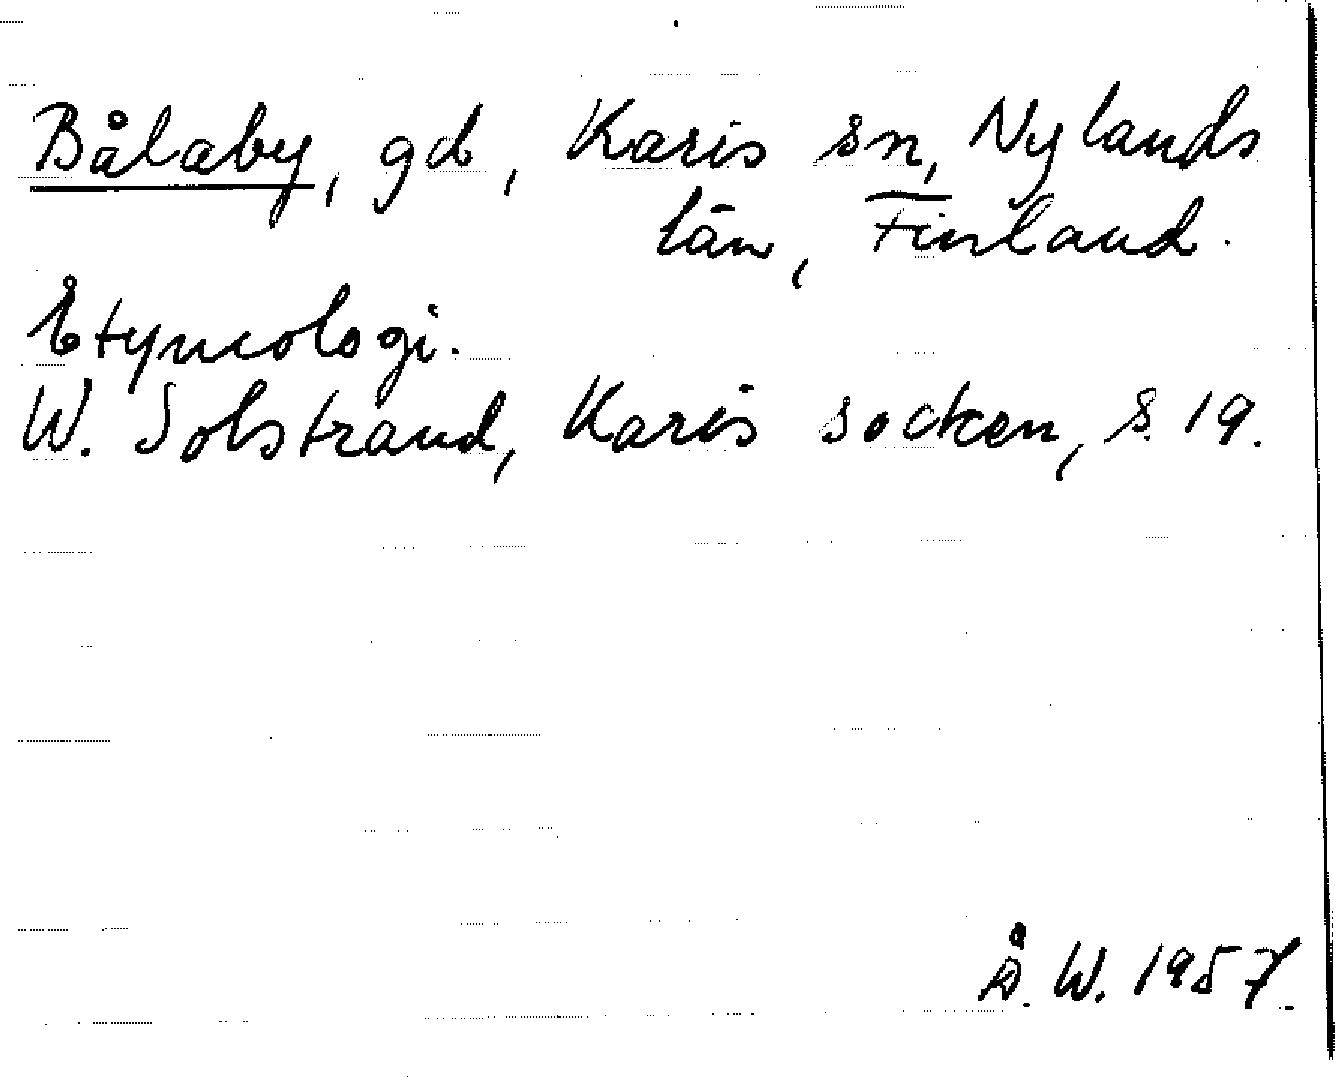 Bålaby, gd, Karis sn, Nylands
län, Finland.
Etymologi.
W. Solstrand, Karis socken, s. 19.
Å. W. 1957.